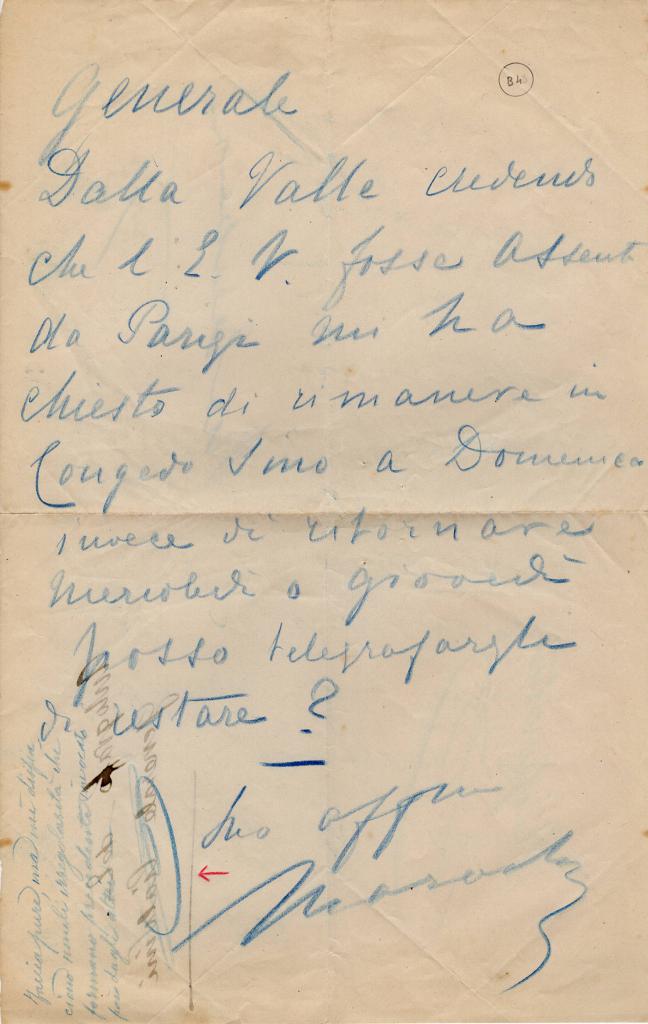 B4
Generale
Dalla Valle credendo
che l E. V. fosse Assent
da Parigi mi ha
chiesto di rimanere in
Congedo sino a Domenica
invece di ritornare
Mercoledì o giovedì
posso telegrafargli
di restare ?
Suo affmo
Faccia pure ma mi dispia
ciono simili irregolarità che
formano precedente